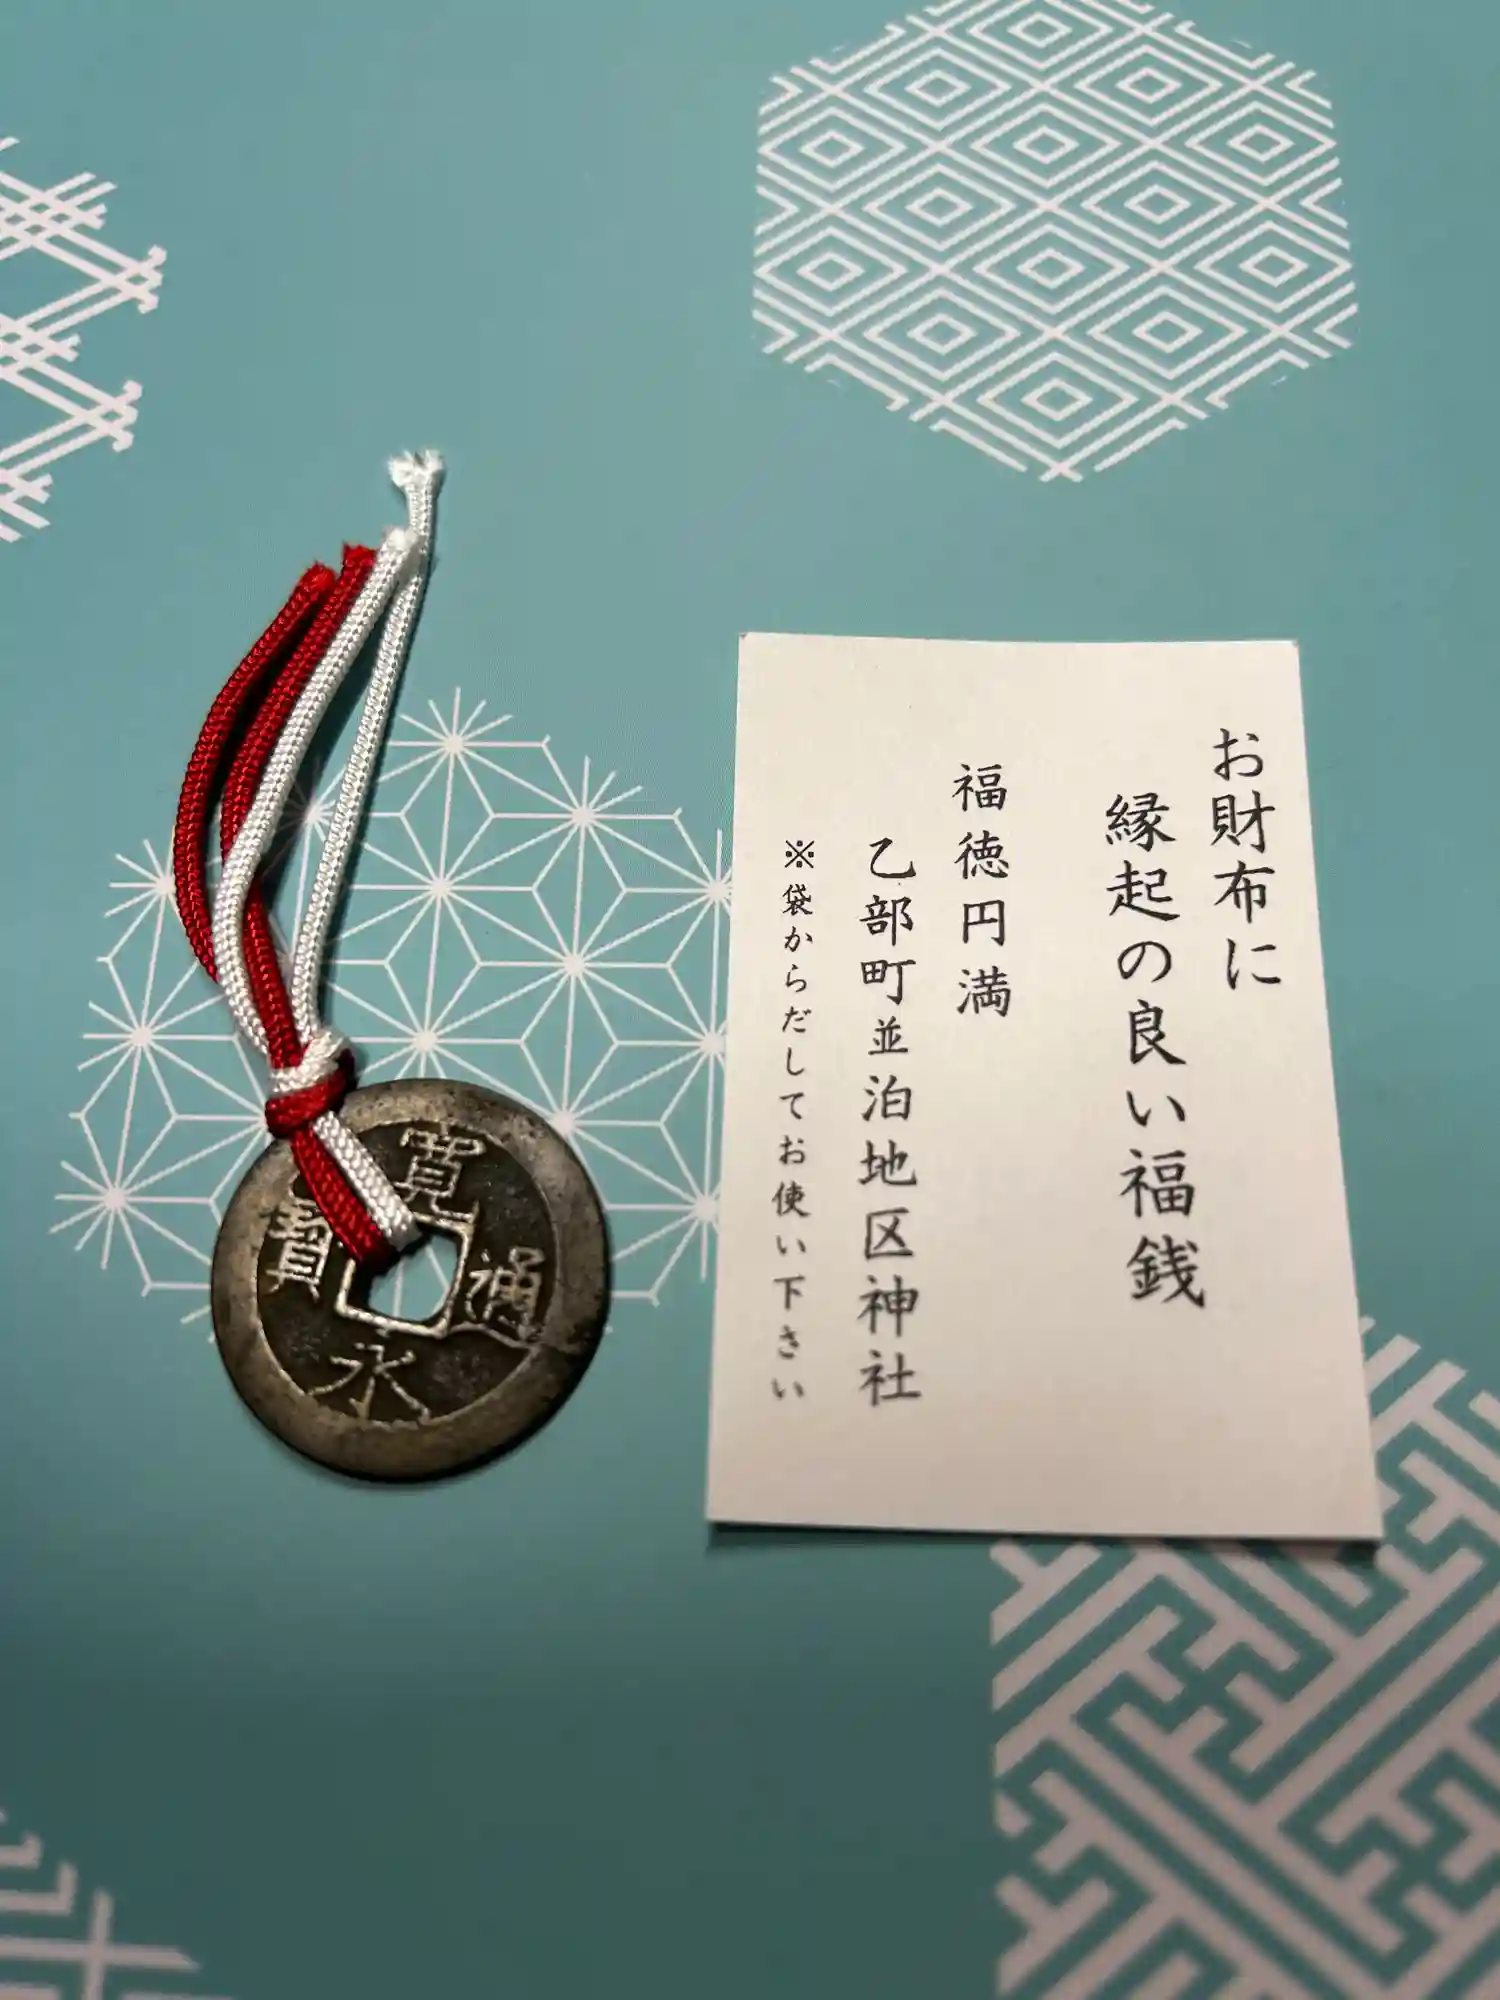 お財布に
縁起の良い福銭
福徳円満
乙部町並泊地区神社
※袋からだしてお使い下さい
寛永通寳